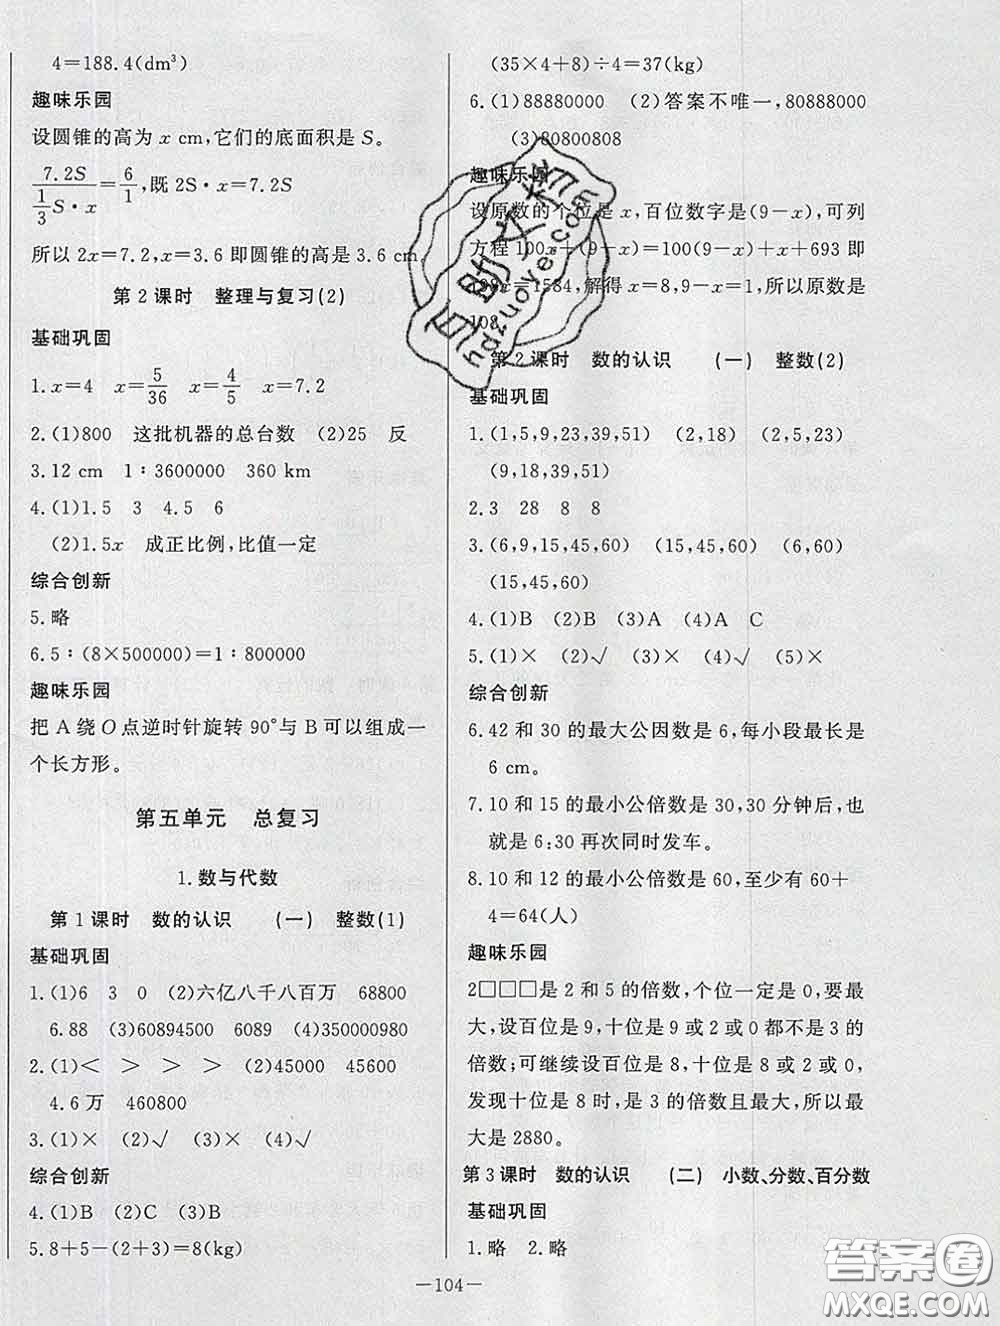 4=188.4(dm³)
趣味乐园
设圆锥的高为 x cm,它们的底面积是 S。
7.2S/(1/3 S·x)=6/1,既 2S·x=7.2S
所以 2x=7.2,x=3.6 即圆锥的高是 3.6 cm
第 2 课时 整理与复习(2)
基础巩固
1.x=4 x=5/36 x=4/5 x=7.2
2.(1)800 这批机器的总台数 (2)25 反
3.12 cm 1∶3600000 360 km
4.(1)1.5 3 4.5 6
(2)1.5x 成正比例,比值一定
综合创新
5.略
6.5∶(8×500000)=1∶800000
趣味乐园
把 A 绕 O 点逆时针旋转 90°与 B 可以组成一
个长方形。
第五单元 总复习
1.数与代数
第 1 课时 数的认识 (一) 整数(1)
基础巩固
1.(1)6 3 0 (2)六亿八千八百万 68800
6.88 (3)60894500 6089 (4)350000980
2.(1)< > > > (2)45000 45600
4.6 万 460800
3.(1)× (2)√ (3)× (4)√
综合创新
4.(1)B (2)C (3)B
5.8+5-(2+3)=8(kg)
(35×4+8)÷4=37(kg)
6.(1)88880000 (2)答案不唯一,80888000
(3)80800808
趣味乐园
设原数的个位是 x,百位数字是(9-x),可列
方程 100x+(9-x)=100(9-x)+x+693 即
198x=1584,解得 x=8,9-x=1,所以原数是
108
第 2 课时 数的认识 (一) 整数(2)
基础巩固
1.(1,5,9,23,39,51) (2,18) (2,5,23)
(9,18,39,51)
2.3 28 8 8
3.(6,9,15,45,60) (15,45,60) (6,60)
(15,45,60)
4.(1)B (2)B (3)A (4)A C
5.(1)× (2)√ (3)× (4)√ (5)×
综合创新
6.42 和 30 的最大公因数是 6,每小段最长是
6 cm。
7.10 和 15 的最小公倍数是 30,30 分钟后,也
就是 6:30 再次同时发车。
8.10 和 12 的最小公倍数是 60,至少有 60+
4=64(人)
趣味乐园
2□□□是 2 和 5 的倍数,个位一定是 0,要最
大,设百位是 9,十位是 9 或 2 或 0 都不是 3 的
倍数;可继续设百位是 8,十位是 8 或 2 或 0,
发现十位是 8 时,是 3 的倍数且最大,所以最
大是 2880。
第 3 课时 数的认识 (二) 小数、分数、百分数
基础巩固
1.略 2.略
—104—
答案圈
MXQE.COM